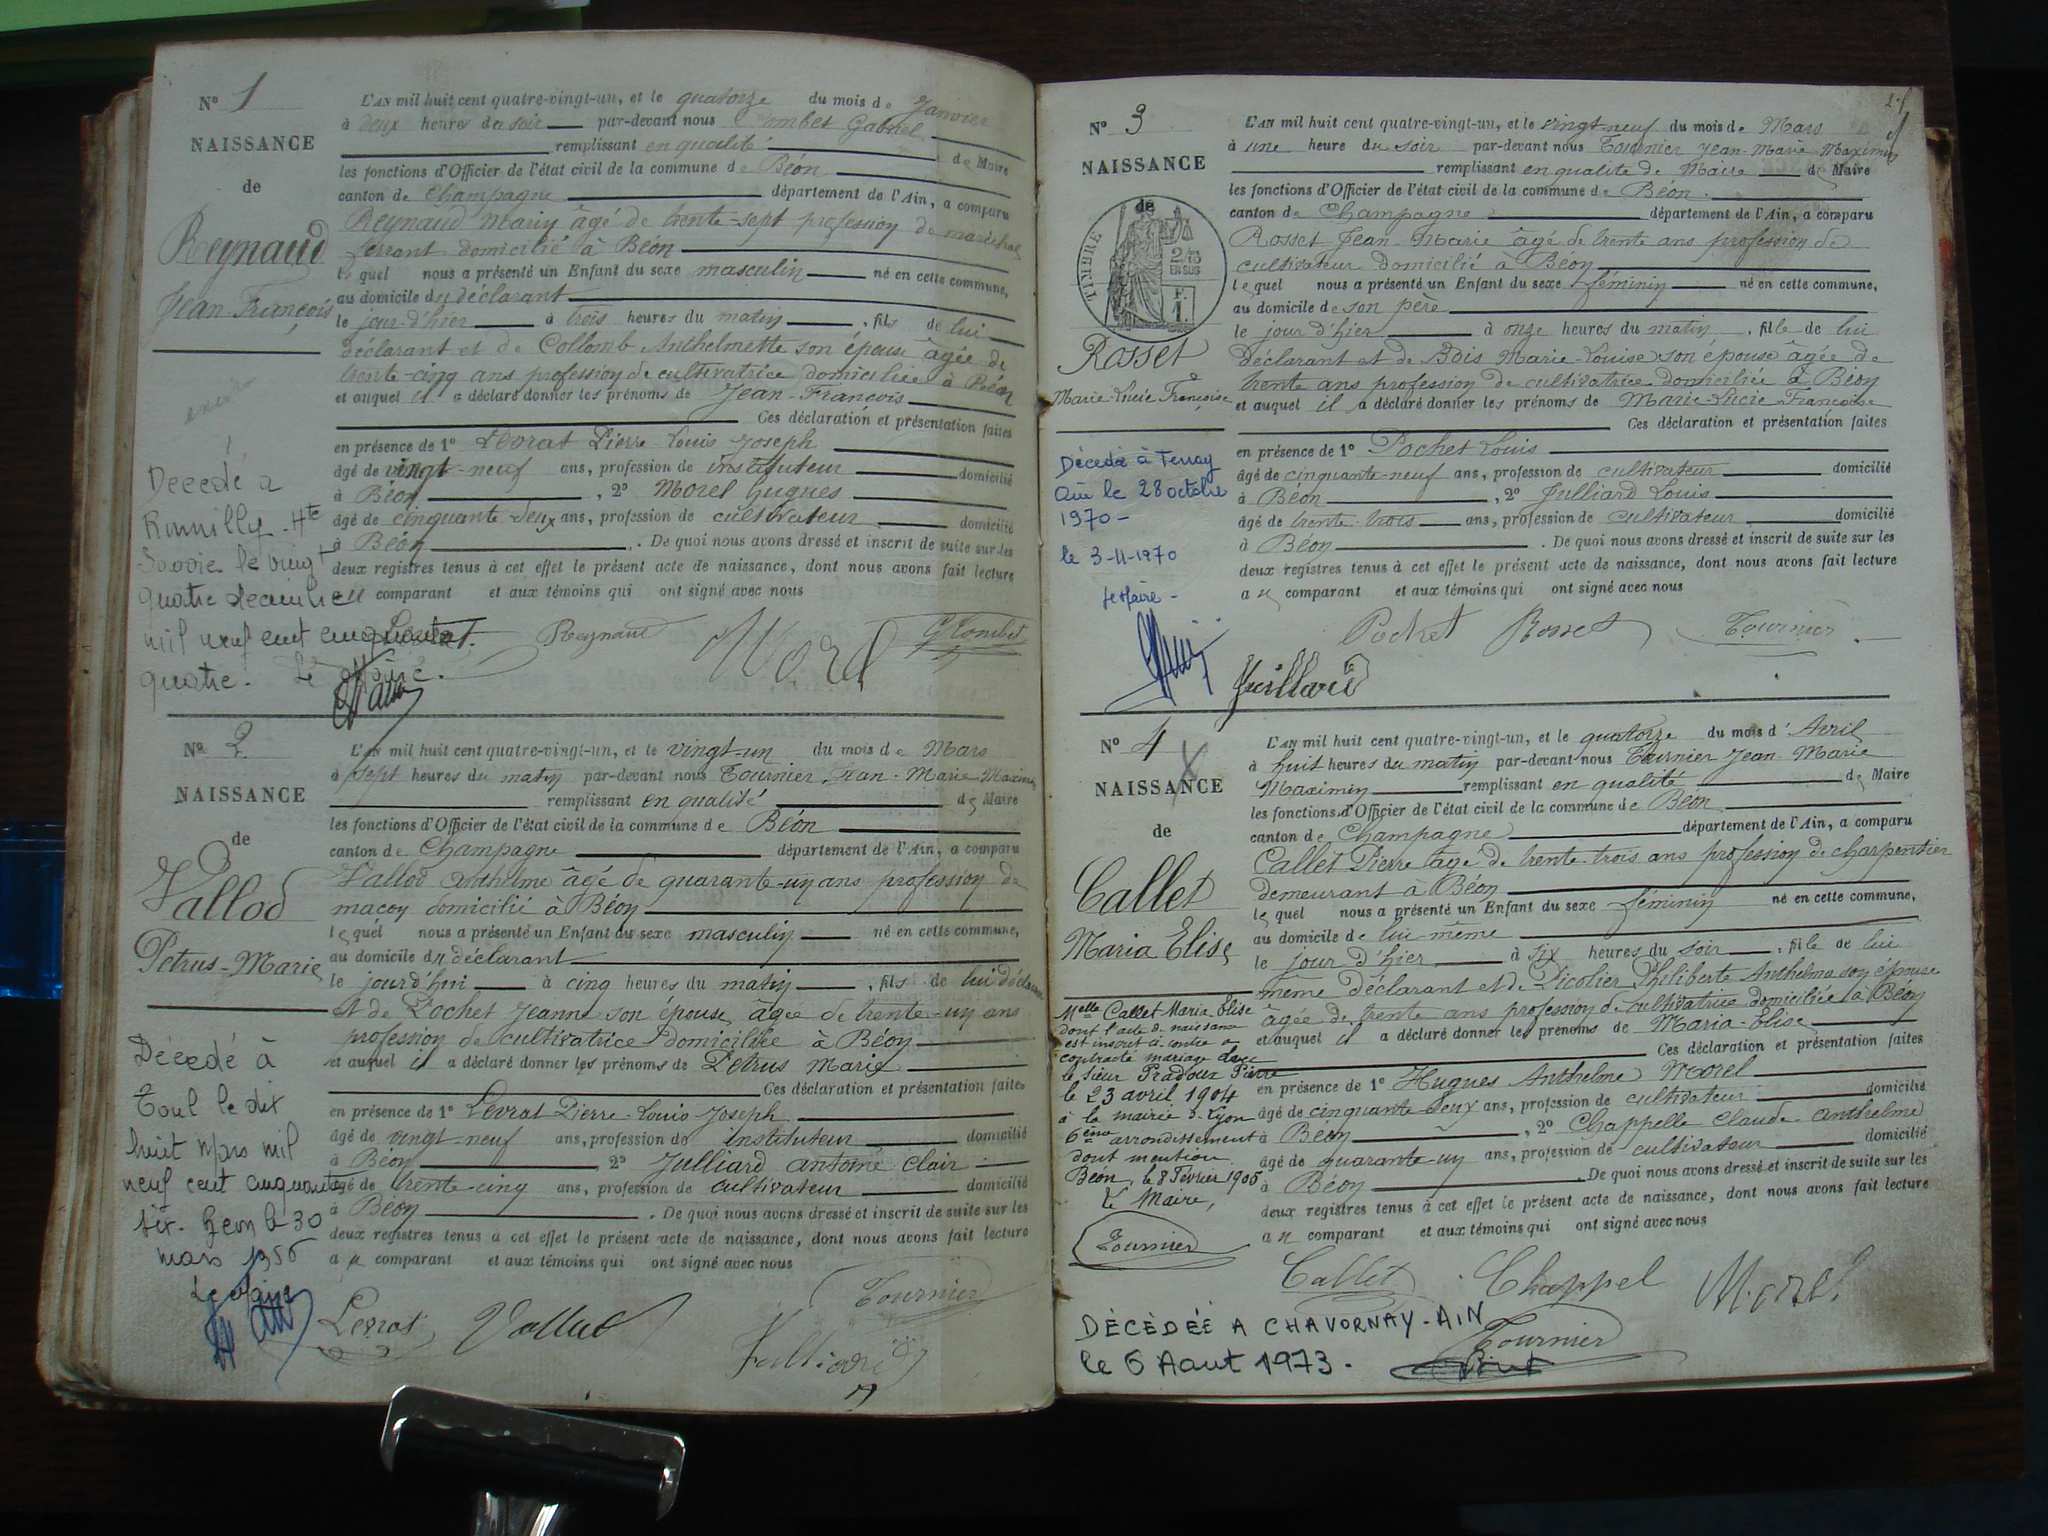 Nº 1
NAISSANCE
de
Reynaud
Jean-François
L'AN mil huit cent quatre-vingt-un, et le quatorze du mois de Janvier
à deux heures du soir par-devant nous Combet Gabriel
remplissant en qualité de Maire
les fonctions d'Officier de l'état civil de la commune de Béon
canton de Champagne département de l'Ain, a comparu
Reynaud Marin âgé de trente-sept profession de maréchal
ferrant domicilié à Béon
lequel nous a présenté un Enfant du sexe masculin né en cette commune,
au domicile du déclarant
le jour d'hier à trois heures du matin, fils de lui
déclarant et de Collomb Anthelmette son épouse âgée de
trente-cinq ans profession de cultivatrice domiciliée à Béon
et auquel il a déclaré donner les prénoms de Jean-François
Ces déclaration et présentation faites
en présence de 1º Levrat Pierre-Louis Joseph
âgé de vingt-neuf ans, profession de instituteur domicilié
à Béon, 2º Morel hugues
âgé de cinquante-deux ans, profession de cultivateur domicilié
à Béon. De quoi nous avons dressé et inscrit de suite sur les
deux registres tenus à cet effet le présent acte de naissance, dont nous avons fait lecture
au comparant et aux témoins qui ont signé avec nous
Levrat Reynaud Morel G Combet
Décédé à
Rumilly-Hte
Savoie le vingt
quatre decembre
mil neuf cent cinquante
quatre. Le Maire.
Nº 2
NAISSANCE
de
Vallod
Petrus-Marie
L'AN mil huit cent quatre-vingt-un, et le vingt-un du mois de Mars
à sept heures du matin par-devant nous Tournier Jean-Marie Maximin
remplissant en qualité de Maire
les fonctions d'Officier de l'état civil de la commune de Béon
canton de Champagne département de l'Ain, a comparu
Vallod Anthelme âgé de quarante-un ans profession de
maçon domicilié à Béon
lequel nous a présenté un Enfant du sexe masculin né en cette commune,
au domicile du déclarant
le jourd'hui à cinq heures du matin, fils de lui déclarant
et de Pochet Jeanne son épouse âgée de trente-un ans
profession de cultivatrice domiciliée à Béon
et auquel il a déclaré donner les prénoms de Petrus Marie
Ces déclaration et présentation faites
en présence de 1º Levrat Pierre-Louis Joseph
âgé de vingt-neuf ans, profession de instituteur domicilié
à Béon 2º Julliard antoine clair
âgé de trente-cinq ans, profession de cultivateur domicilié
à Béon. De quoi nous avons dressé et inscrit de suite sur les
deux registres tenus à cet effet le présent acte de naissance, dont nous avons fait lecture
au comparant et aux témoins qui ont signé avec nous
Levrat Vallod Julliard Tournier
Décédé à
Toul le dix
huit Mars mil
neuf cent cinquante
six. Béon le 30
mars 1956
Le Maire
Nº 3
NAISSANCE
de
TIMBRE
2/10
EN SUS
F.
1.
Rosset
Marie-Lucie Françoise
L'AN mil huit cent quatre-vingt-un, et le vingt-neuf du mois de Mars
à une heure du soir par-devant nous Tournier Jean-Marie Maximin
remplissant en qualité de Maire de Maire
les fonctions d'Officier de l'état civil de la commune de Béon
canton de Champagne département de l'Ain, a comparu
Rosset Jean-Marie âgé de trente ans profession de
cultivateur domicilié à Béon
lequel nous a présenté un Enfant du sexe féminin né en cette commune,
au domicile de son père
le jour d'hier à onze heures du matin, fille de lui
déclarant et de Bois Marie-Louise son épouse âgée de
trente ans profession de cultivatrice domiciliée à Béon
et auquel il a déclaré donner les prénoms de Marie-Lucie Françoise
Ces déclaration et présentation faites
en présence de 1º Pochet Louis
âgé de cinquante-neuf ans, profession de cultivateur domicilié
à Béon, 2º Julliard Louis
âgé de trente-trois ans, profession de cultivateur domicilié
à Béon. De quoi nous avons dressé et inscrit de suite sur les
deux registres tenus à cet effet le présent acte de naissance, dont nous avons fait lecture
au comparant et aux témoins qui ont signé avec nous
Pochet Rosset Tournier
Juillard
Décédée à Tenay
Ain le 28 octobre
1970 -
le 3-11-1970
le Maire -
Nº 4
NAISSANCE
de
Callet
Maria Elise
L'AN mil huit cent quatre-vingt-un, et le quatorze du mois d'Avril
à huit heures du matin par-devant nous Tournier Jean-Marie
Maximin remplissant en qualité de Maire
les fonctions d'Officier de l'état civil de la commune de Béon
canton de Champagne département de l'Ain, a comparu
Callet Pierre âgé de trente-trois ans profession de charpentier
demeurant à Béon
lequel nous a présenté un Enfant du sexe féminin né en cette commune,
au domicile de lui-même
le jour d'hier à six heures du soir, fille de lui
même déclarant et de Picolier Philiberte Anthelma son épouse
âgée de trente ans profession de cultivatrice domiciliée à Béon
et auquel il a déclaré donner les prénoms de Maria-Elise
Ces déclaration et présentation faites
en présence de 1º Hugues Anthelme Morel
âgé de cinquante-deux ans, profession de cultivateur domicilié
à Béon, 2º Chappelle Claude anthelme
âgé de quarante-un ans, profession de cultivateur domicilié
à Béon. De quoi nous avons dressé et inscrit de suite sur les
deux registres tenus à cet effet le présent acte de naissance, dont nous avons fait lecture
au comparant et aux témoins qui ont signé avec nous
Callet Chappel Morel
Tournier
Melle Callet Maria Elise
dont l'acte de naissance
est inscrit ci-contre a
contracté mariage avec
le sieur Pradoux Pierre
le 23 avril 1904
à la mairie de Lyon
6ème arrondissement
dont mention
Béon, le 8 Février 1905
Le Maire,
Tournier
DÉCÈDÉE A CHAVORNAY-AIN
le 6 Aout 1973.